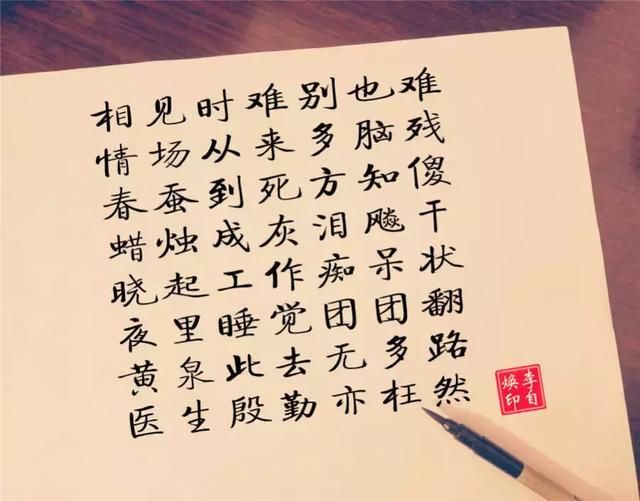 相见时难别也难
情场从来多脑残
春蚕到死方知傻
蜡烛成灰泪飚干
晓起工作痴呆状
夜里睡觉团团翻
黄泉此去无多路
医生殷勤亦枉然
李自焕印